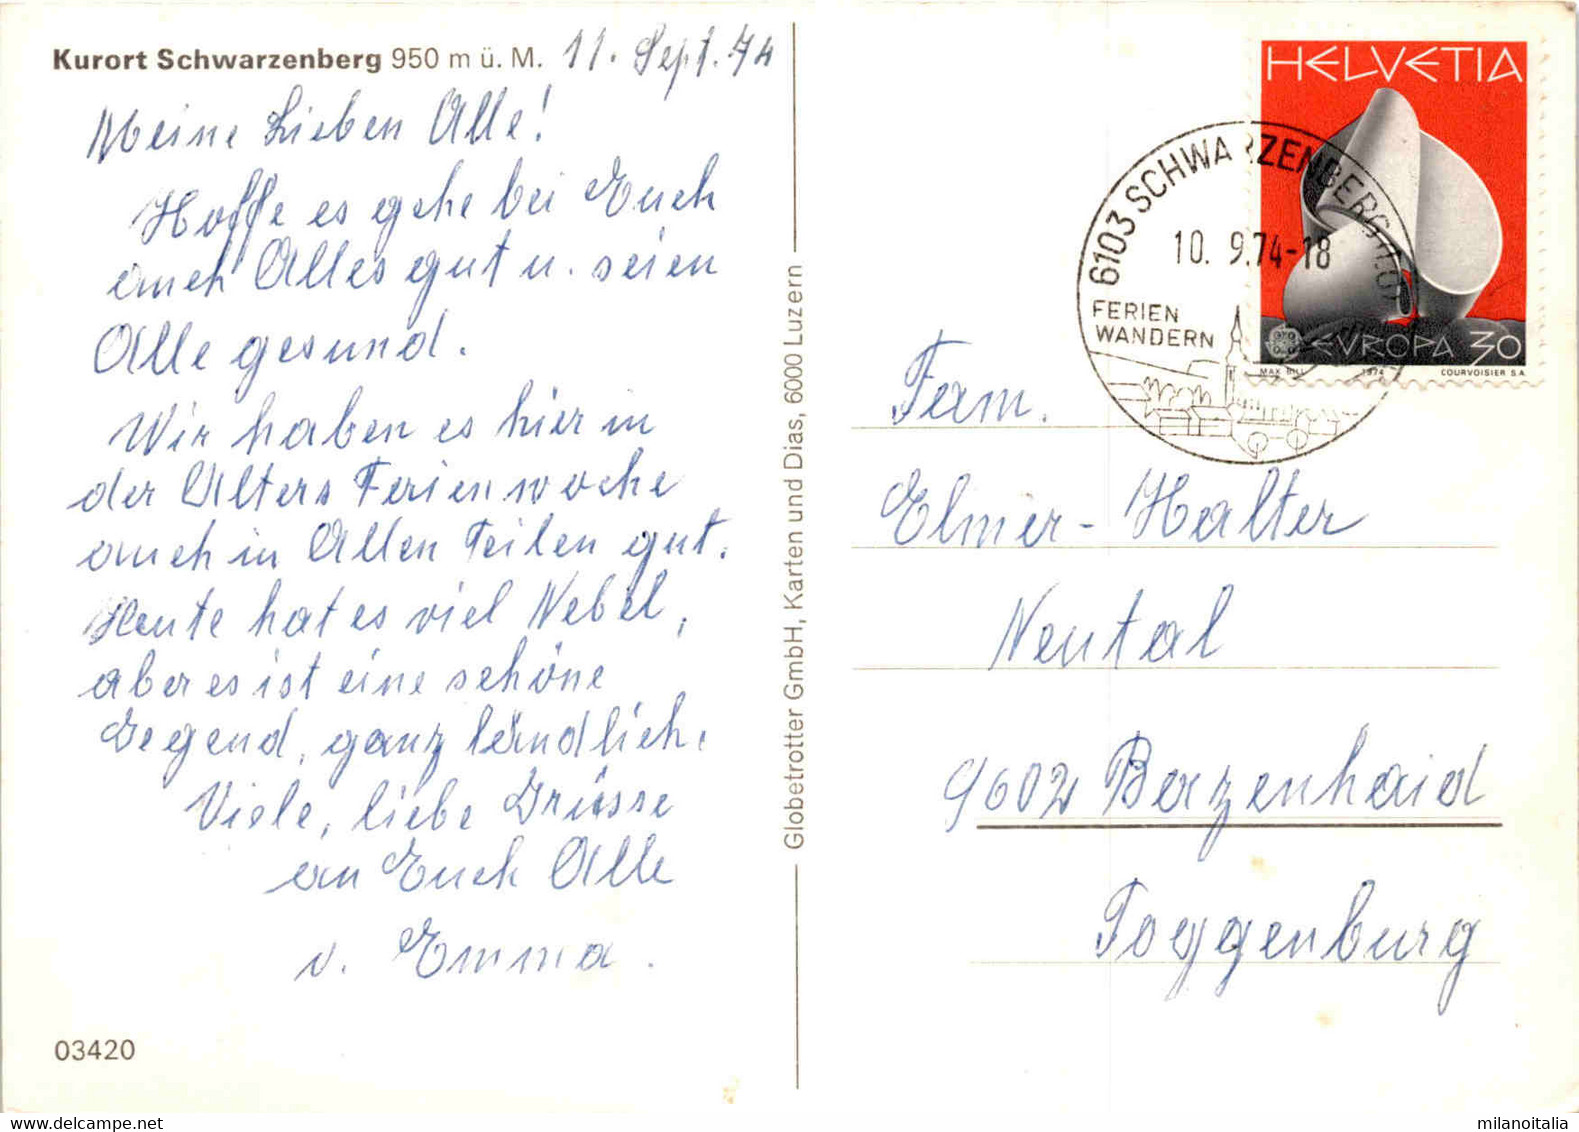 Kurort Schwarzenberg 950 m ü. M. 11. Sept. 74
Meine Lieben Alle!
Hoffe es gehe bei Euch
auch Alles gut u. seien
Alle gesund.
Wir haben es hier in
der Alters Ferienwoche
auch in Allen Teilen gut.
Heute hat es viel Nebel,
aber es ist eine schöne
Gegend, ganz ländlich.
Viele, liebe Grüsse
an Euch Alle
v. Emma.
03420
Globetrotter GmbH, Karten und Dias, 6000 Luzern
HELVETIA
EVROPA 30
MAX BILL 1974 COURVOISIER S.A.
6103 SCHWARZENBERG
10. 9.74-18
FERIEN
WANDERN
Fam.
Elmer-Halter
Neutal
9602 Bazenhaid
Toggenburg
milanoitalia
www.delcampe.net